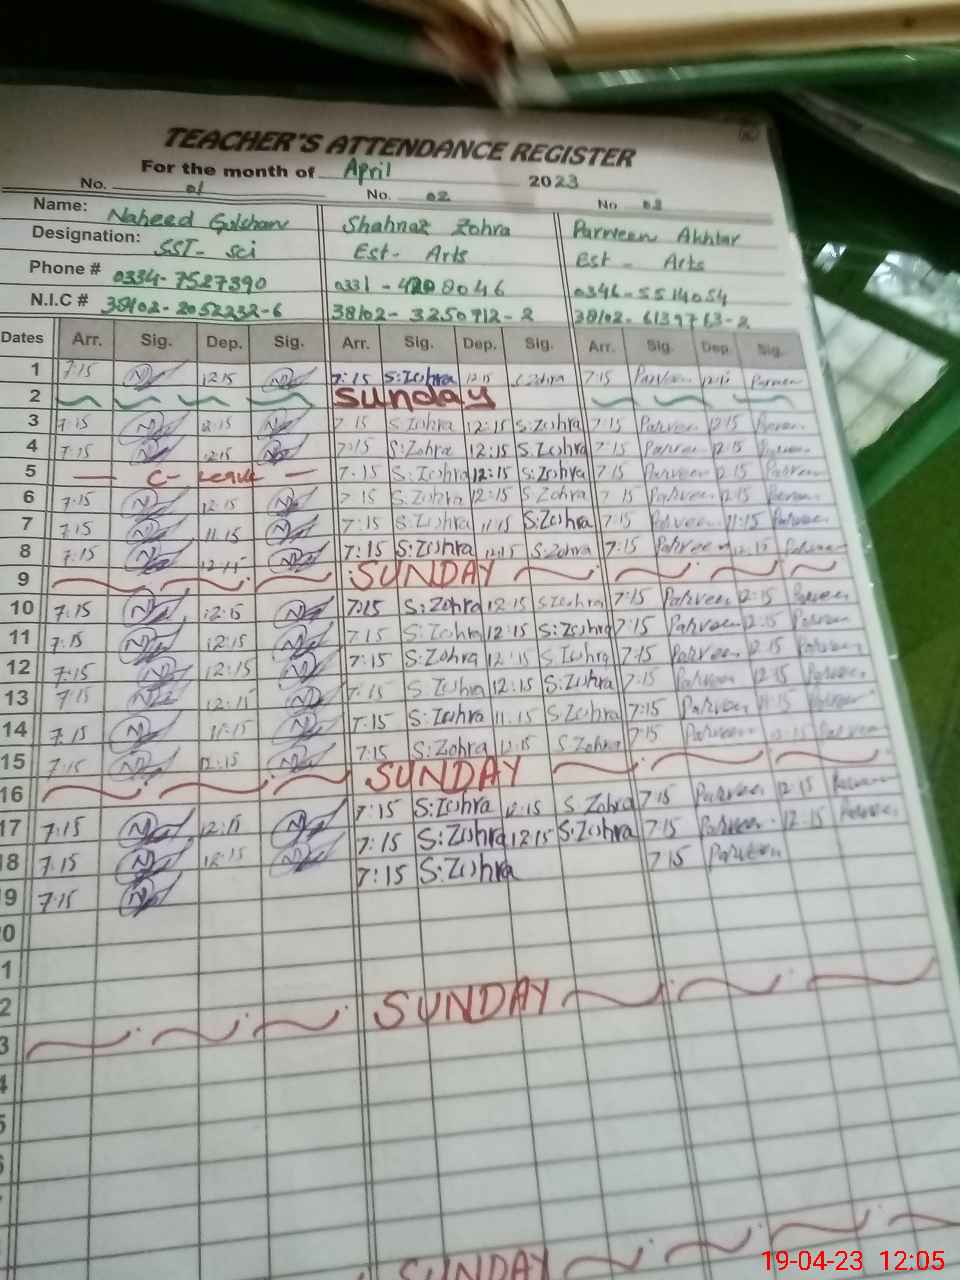 TEACHER'S ATTENDANCE REGISTER
For the month of April 2023
No. 01 No. 02 No 03
Name: Naheed Gulshan Shahnaz Zohra Parveen Akhtar
Designation: SST- Sci Est- Arts Est - Arts
Phone # 0334-7527390 0331-4208046 0346-5514054
N.I.C # 38102-2052232-6 38102-3250912-2 38102-6139763-2
Dates Arr. Sig. Dep. Sig. Arr. Sig. Dep. Sig. Arr. Sig. Dep. Sig.
1 7:15 12:15 7:15 S:Zohra 12:15 S.Zohra 7:15 Parveen 12:15 Parveen
2 Sunday
3 7:15 12:15 7:15 S.Zohra 12:15 S.Zohra 7:15 Parveen 12:15 Parveen
4 7:15 12:15 7:15 S:Zohra 12:15 S.Zohra 7:15 Parveen 12:15 Parveen
5 C- Leave 7:15 S:Zohra 12:15 S:Zohra 7:15 Parveen 12:15 Parveen
6 7:15 12:15 7:15 S:Zohra 12:15 S Zohra 7:15 Parveen 12:15 Parveen
7 7:15 11.15 7:15 S:Zohra 11:15 S:Zohra 7:15 Parveen 11:15 Parveen
8 7:15 12:15 7:15 S:Zohra 12:15 S.Zohra 7:15 Parveen 12:15 Parveen
9 SUNDAY
10 7:15 12:15 7:15 S:Zohra 12:15 S Zohra 7:15 Parveen 12:15 Parveen
11 7:15 12:15 7:15 S:Zohra 12:15 S:Zohra 7:15 Parveen 12:15 Parveen
12 7:15 12:15 7:15 S:Zohra 12:15 S.Zohra 7:15 Parveen 12:15 Parveen
13 7:15 12:15 7:15 S:Zohra 12:15 S:Zohra 7:15 Parveen 12:15 Parveen
14 7:15 11:15 7:15 S:Zohra 11.15 S.Zohra 7:15 Parveen 11:15 Parveen
15 7:15 12:15 7:15 S:Zohra 12:15 S Zohra 7:15 Parveen 12:15 Parveen
16 SUNDAY
17 7:15 12:15 7:15 S:Zohra 12:15 S.Zohra 7:15 Parveen 12:15 Parveen
18 7:15 12:15 7:15 S:Zohra 12:15 S:Zohra 7:15 Parveen 12:15 Parveen
9 7:15 7:15 S:Zohra 7:15 Parveen
0
1
2
3 SUNDAY
4
5
6
SUNDAY
19-04-23 12:05